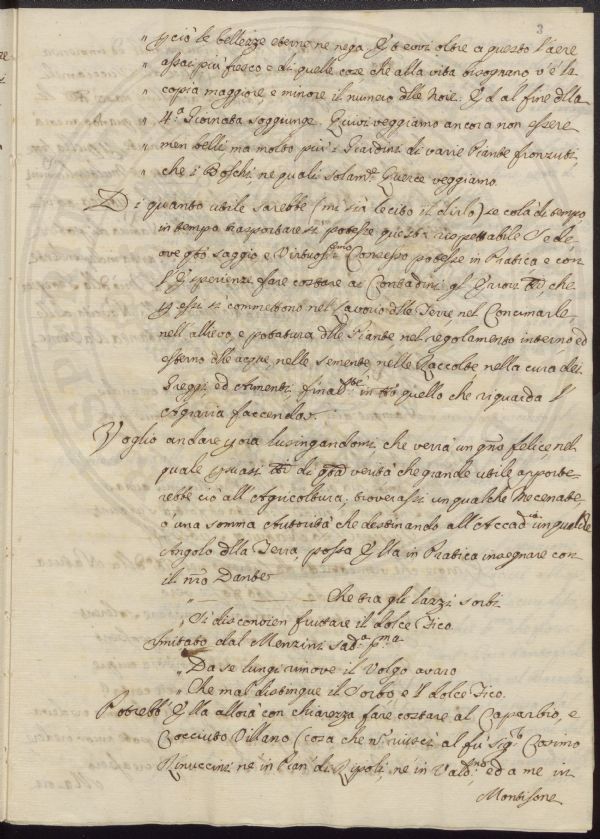 3
" p ciò le bellezze eterne ne nega. E t'evvi oltre a questo l'aere
" assai più fresco e di quelle cose che alla vita bisognano v'è la
" copia maggiore, e minore il numero dlle Noie. Ed al fine dlla
" 4.ª Giornata soggiunge. Quivi veggiamo ancora non essere
" men belli ma molto più i Giardini di varie Piante fronzuti,
" che i Boschi ne quali solam.e Querce veggiamo.
Di quanto utile sarebbe (mi sia lecito il dirlo) se colà di tempo
in tempo trasportare si potesse questa rispettabile Sede,
ove qto saggio e Virtuosissimo Consesso potesse in Pratica e con
l'Esperienze fare costare ai Contadini gl'Errori tti, che
p essi si commettono nel Lavorio dlle Terre, nel Concimarle
nell'allievo, e potatura dlle Piante nel regolamento interno ed
esterno dlle acque, nelle semente, nelle Raccolte, nella cura dei
Greggi, ed Armenti, final.te in tto quello che riguarda l'
Agraria faccenda.
Voglio andare p ora lusingandomi che verrà un gno felice nel
quale psuasi tti di qta verità che grande utile apporte-
rebbe ciò all'Agricoltura; troverassi un qualche Mecenate
o una somma Autorità che destinando all'Accad.a un qualche
Angolo dlla Terra, possa Ella in Pratica insegnare con
il nro Dante
" Che tra gli lazzi sorbi
" Si disconvien fruttare il dolce Fico.
Imitato dal Menzini Sat.ª p.ma
" Da se lungi rimove il Volgo avaro
" Che mal distingue il Sorbo, e 'l dolce Fico.
Potrebb'Ella allora con chiarezza fare costare al Caparbio, e
Cocciuto Villano (cosa che n riuscì al fù Sig.e Cosimo
Minuccini nè in Pian' di Ripoli, nè in Vald.no ed a me in
Montisone